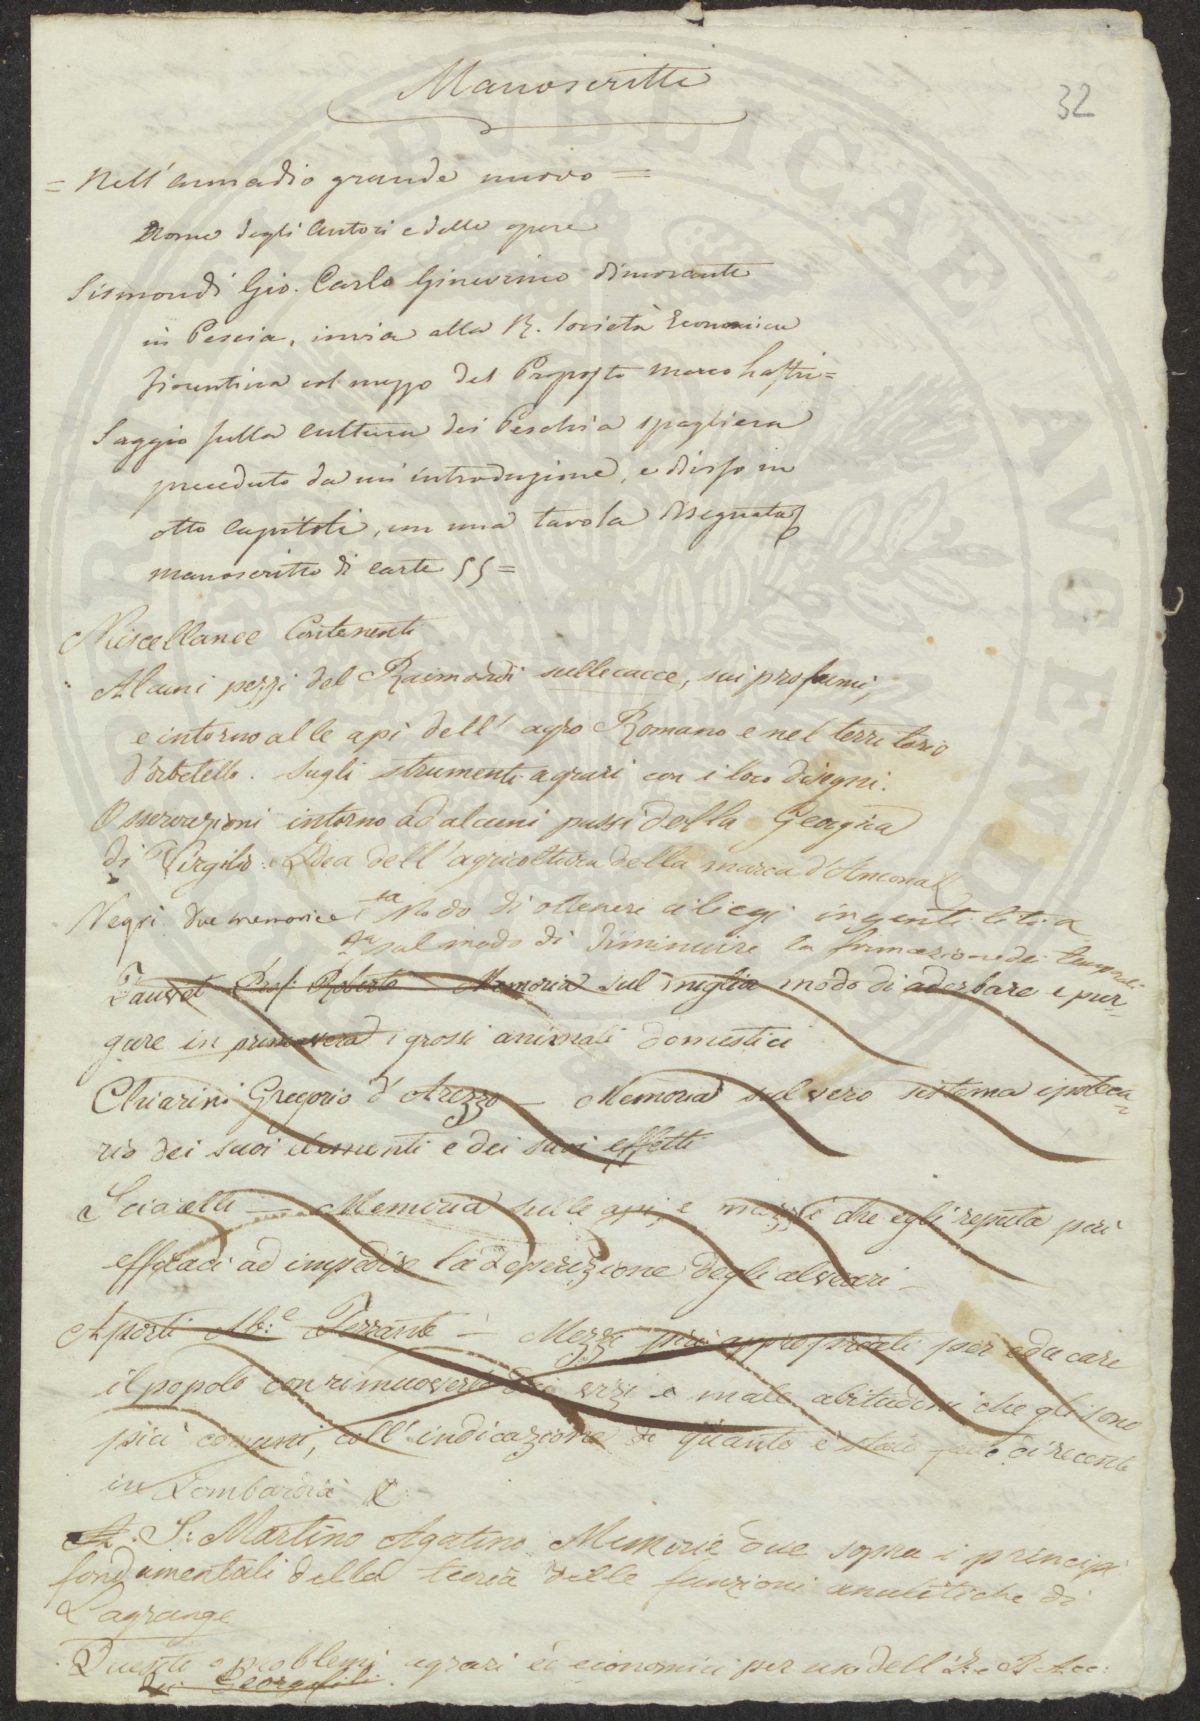 Manoscritti
32
= Nell' armadio grande nuovo =
Nome degli autori e delle opere
Sismondi Gio. Carlo Ginevrino dimorante
in Pescia, invia alla R. Società Economica
fiorentina col mezzo del Proposto Marco Lastri =
Saggio sulla cultura dei Peschi a spagliera
preceduto da un' introduzione, e diviso in
otto capitoli, con una tavola disegnata
manoscritto di carte 55 =
Miscellanee Contenenti
Alcuni pezzi del Raimondi sulle cacce, sui profumi,
e intorno alle api dell' agro Romano e nel territorio
d'orbetello. Sugli strumenti agrari con i loro disegni.
Osservazioni intorno ad alcuni passi della Georgica
di Virgilio. Idea dell' agricoltura della marca d'Ancona
Negri due memorie 1a Modo di ottenere ciliegi ingentiliti
2a sul modo di diminuire la formazione dei temporali
Fauvet Prof: Roberto Memoria sul miglior modo di aderbare e pur-
gare in primavera i grossi animali domestici
Chiarini Gregorio d' Arezzo – Memoria sul vero sistema ipoteca-
rio dei suoi elementi e dei suoi effetti
Sciarelli – Memoria sulle api, e mezzi che egli reputa più
efficaci ad impedire la deperizione degli alveari –
Aporti Ab:e Ferrante – Mezzi più appropriati per educare
il popolo con rimuoverlo dai vizi e male abitudini che gli sono
più comuni, coll' indicazione di quanto è stato fatto di recente
in Lombardia &
S: Martino Agatino Memorie due sopra i principi
fondamentali della teoria delle funzioni analitiche di
Lagrange
Quesiti o problemi agrari ed economici per uso dell' I. e R. Acc:
dei Georgofili.